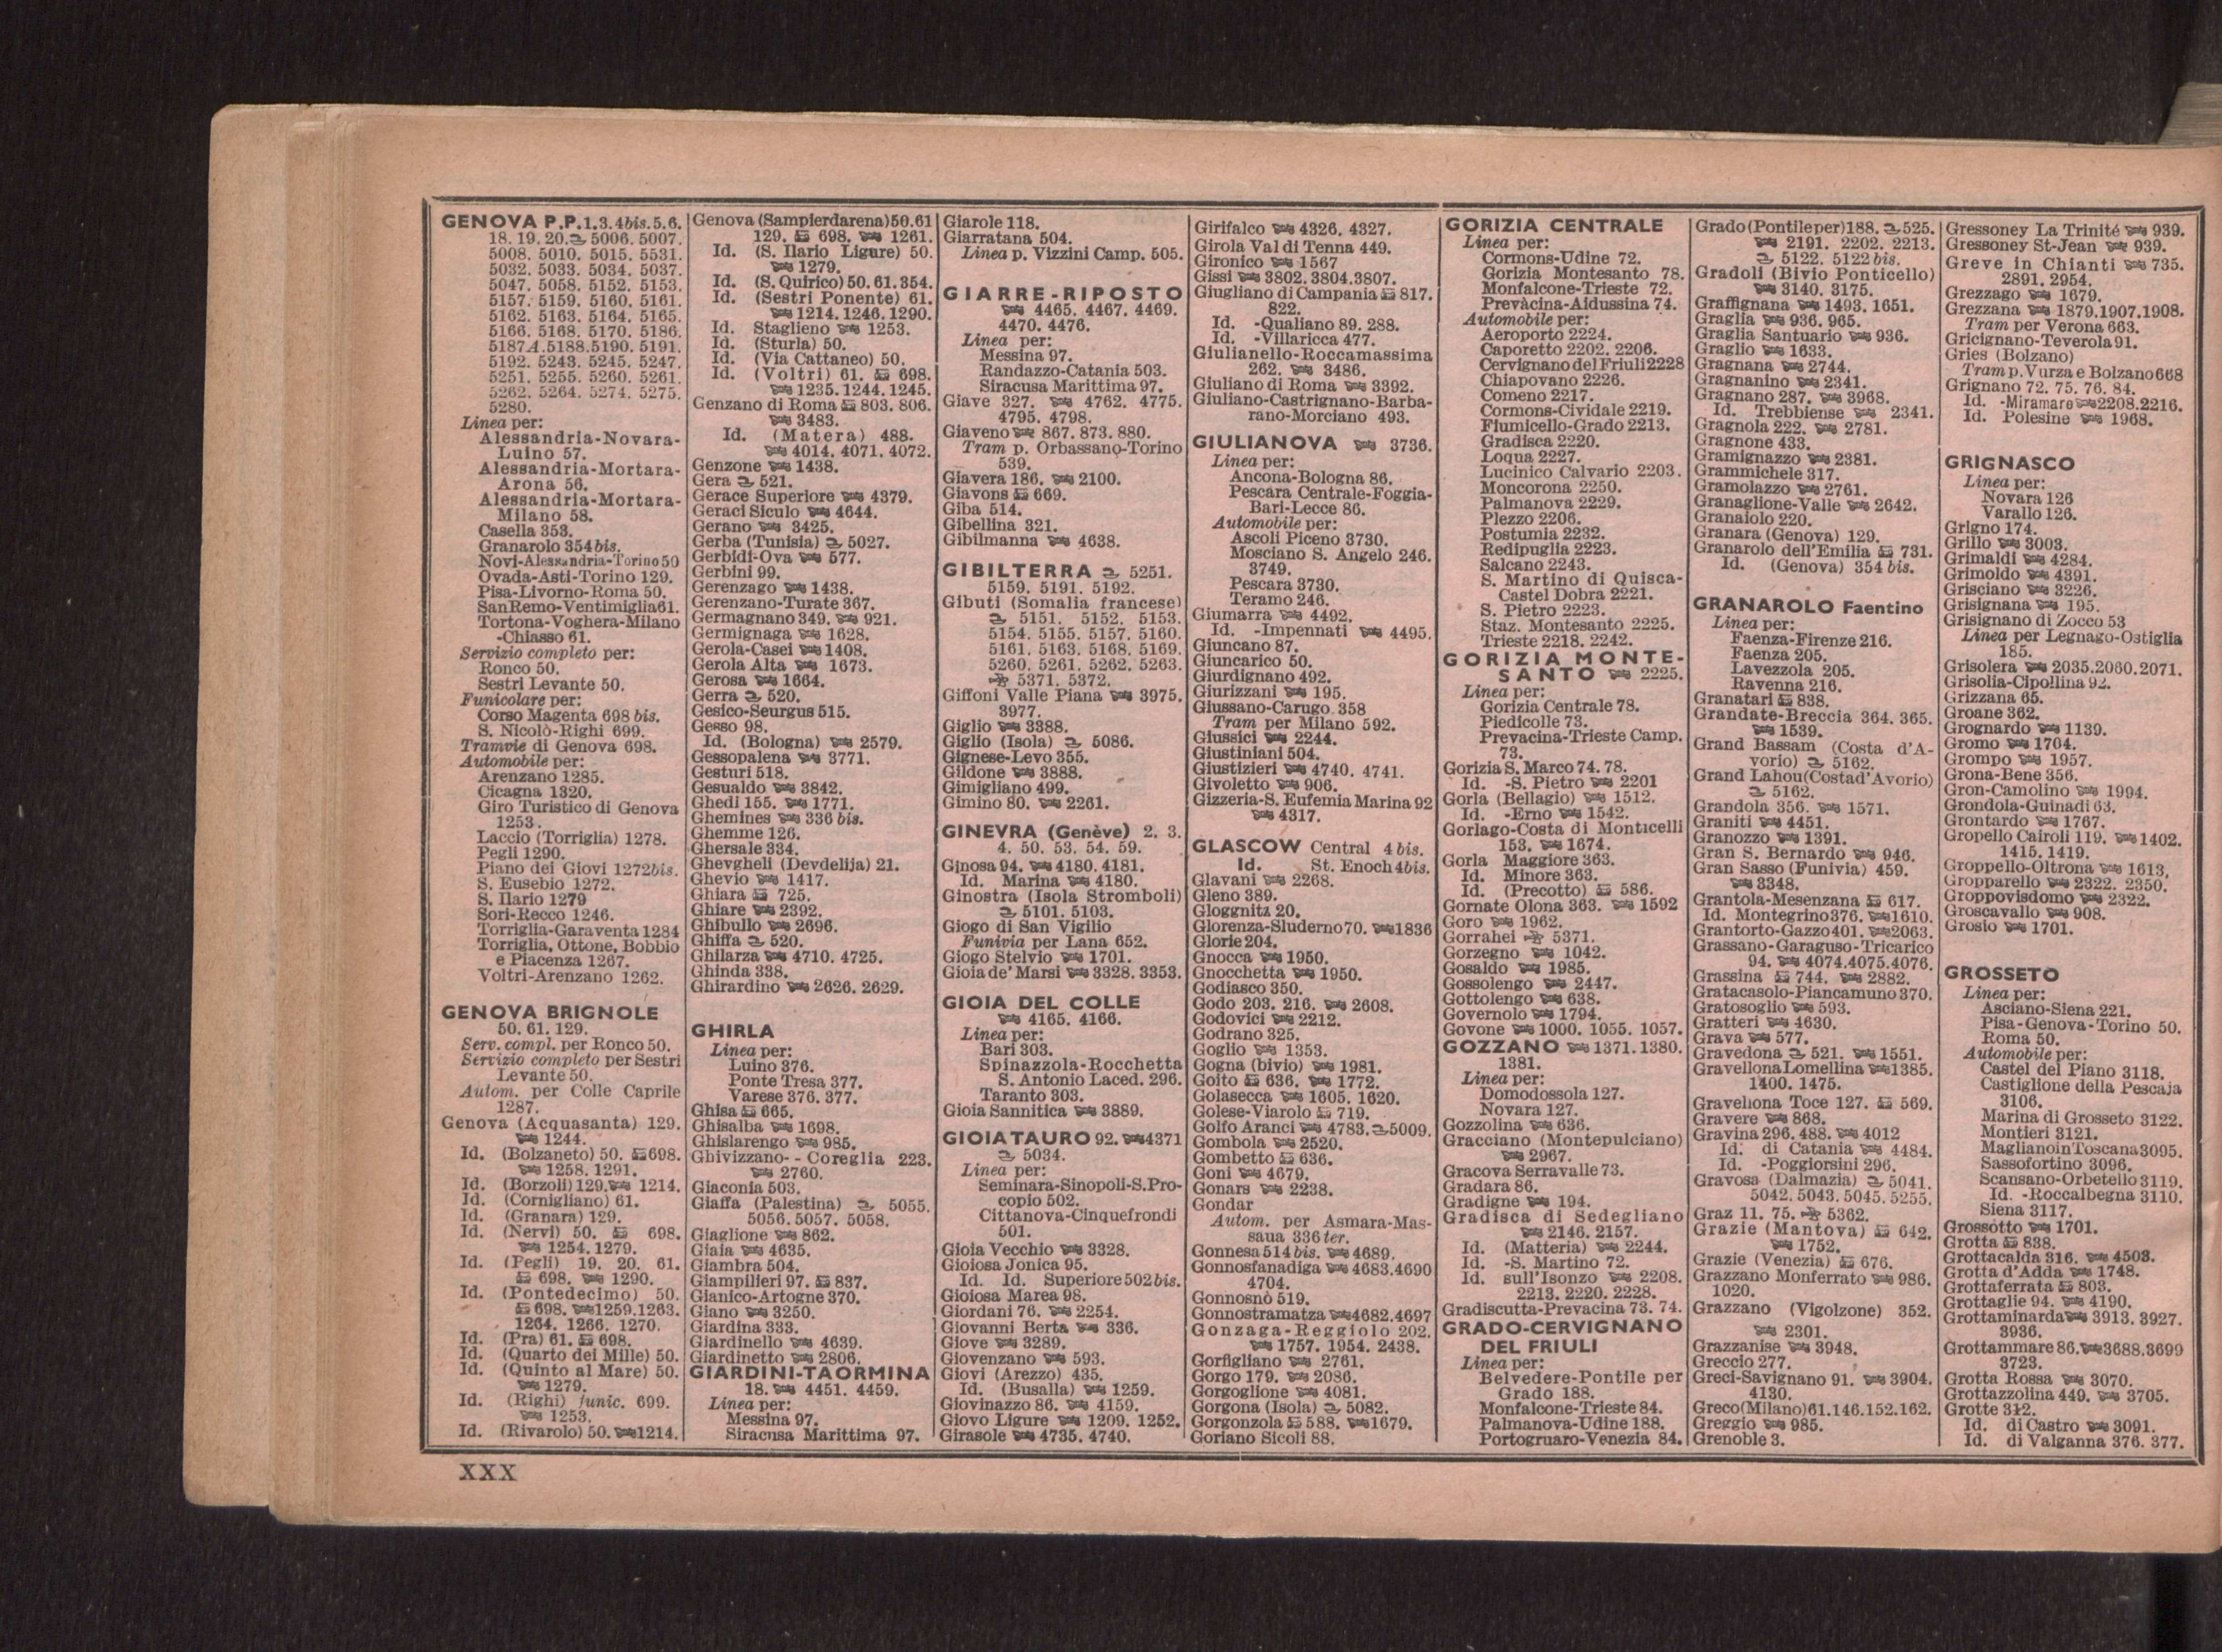 GENOVA P.P. 1. 3. 4bis. 5. 6.
18. 19. 20. 5006. 5007.
5008. 5010. 5015. 5531.
5032. 5033. 5034. 5037.
5047. 5058. 5152. 5153.
5157. 5159. 5160. 5161.
5162. 5163. 5164. 5165.
5166. 5168. 5170. 5186.
5187A. 5188. 5190. 5191.
5192. 5243. 5245. 5247.
5251. 5255. 5260. 5261.
5262. 5264. 5274. 5275.
5280.
Linea per:
Alessandria-Novara-
Luino 57.
Alessandria-Mortara-
Arona 56.
Alessandria-Mortara-
Milano 58.
Casella 353.
Granarolo 354bis.
Novi-Alessandria-Torino 50
Ovada-Asti-Torino 129.
Pisa-Livorno-Roma 50.
San Remo-Ventimiglia 61.
Tortona-Voghera-Milano
-Chiasso 61.
Servizio completo per:
Ronco 50.
Sestri Levante 50.
Funicolare per:
Corso Magenta 698 bis.
S. Nicolò-Righi 699.
Tramvie di Genova 698.
Automobile per:
Arenzano 1285.
Cicagna 1320.
Giro Turistico di Genova
1253.
Laccio (Torriglia) 1278.
Pegli 1290.
Piano dei Giovi 1272bis.
S. Eusebio 1272.
S. Ilario 1279
Sori-Recco 1246.
Torriglia-Garaventa 1284
Torriglia, Ottone, Bobbio
e Piacenza 1267.
Voltri-Arenzano 1262.
GENOVA BRIGNOLE
50. 61. 129.
Serv. compl. per Ronco 50.
Servizio completo per Sestri
Levante 50.
Autom. per Colle Caprile
1287.
Genova (Acquasanta) 129.
1244.
Id. (Bolzaneto) 50. 698.
1258. 1291.
Id. (Borzoli) 129. 1214.
Id. (Cornigliano) 61.
Id. (Granara) 129.
Id. (Nervi) 50. 698.
1254. 1279.
Id. (Pegli) 19. 20. 61.
698. 1290.
Id. (Pontedecimo) 50.
698. 1259. 1263.
1264. 1266. 1270.
Id. (Pra) 61. 698.
Id. (Quarto dei Mille) 50.
Id. (Quinto al Mare) 50.
1279.
Id. (Righi) funic. 699.
1253.
Id. (Rivarolo) 50. 1214.
Genova (Sampierdarena) 50. 61
129. 698. 1261.
Id. (S. Ilario Ligure) 50.
1279.
Id. (S. Quirico) 50. 61. 354.
Id. (Sestri Ponente) 61.
1214. 1246. 1290.
Id. Staglieno 1253.
Id. (Sturla) 50.
Id. (Via Cattaneo) 50.
Id. (Voltri) 61. 698.
1235. 1244. 1245.
Genzano di Roma 803. 806.
3483.
Id. (Matera) 488.
4014. 4071. 4072.
Genzone 1438.
Gera 521.
Gerace Superiore 4379.
Geraci Siculo 4644.
Gerano 3425.
Gerba (Tunisia) 5027.
Gerbidi-Ova 577.
Gerbini 99.
Gerenzago 1438.
Gerenzano-Turate 367.
Germagnano 349. 921.
Germignaga 1628.
Gerola-Casei 1408.
Gerola Alta 1673.
Gerosa 1664.
Gerra 520.
Gesico-Seurgus 515.
Gesso 98.
Id. (Bologna) 2579.
Gessopalena 3771.
Gesturi 518.
Gesualdo 3842.
Ghedi 155. 1771.
Ghemines 336 bis.
Ghemme 126.
Ghersale 334.
Ghevgheli (Devdelija) 21.
Ghevio 1417.
Ghiara 725.
Ghiare 2392.
Ghibullo 2696.
Ghiffa 520.
Ghilarza 4710. 4725.
Ghinda 338.
Ghirardino 2626. 2629.
GHIRLA
Linea per:
Luino 376.
Ponte Tresa 377.
Varese 376. 377.
Ghisa 665.
Ghisalba 1698.
Ghislarengo 985.
Ghivizzano- - Coreglia 223.
2760.
Giaconia 503.
Giaffa (Palestina) 5055.
5056. 5057. 5058.
Giaglione 862.
Giaia 4635.
Giambra 504.
Giampilieri 97. 837.
Gianico-Artogne 370.
Giano 3250.
Giardina 333.
Giardinello 4639.
Giardinetto 2806.
GIARDINI-TAORMINA
18. 4451. 4459.
Linea per:
Messina 97.
Siracusa Marittima 97.
Giarole 118.
Giarratana 504.
Linea p. Vizzini Camp. 505.
GIARRE-RIPOSTO
4465. 4467. 4469.
4470. 4476.
Linea per:
Messina 97.
Randazzo-Catania 503.
Siracusa Marittima 97.
Giave 327. 4762. 4775.
4795. 4798.
Giaveno 867. 873. 880.
Tram p. Orbassano-Torino
539.
Giavera 186. 2100.
Giavons 669.
Giba 514.
Gibellina 321.
Gibilmanna 4638.
GIBILTERRA 5251.
5159. 5191. 5192.
Gibuti (Somalia francese)
5151. 5152. 5153.
5154. 5155. 5157. 5160.
5161. 5163. 5168. 5169.
5260. 5261. 5262. 5263.
5371. 5372.
Giffoni Valle Piana 3975.
3977.
Giglio 3388.
Giglio (Isola) 5086.
Gignese-Levo 355.
Gildone 3888.
Gimigliano 499.
Gimino 80. 2261.
GINEVRA (Genève) 2. 3.
4. 50. 53. 54. 59.
Ginosa 94. 4180. 4181.
Id. Marina 4180.
Ginostra (Isola Stromboli)
5101. 5103.
Giogo di San Vigilio
Funivia per Lana 652.
Giogo Stelvio 1701.
Gioia de' Marsi 3328. 3353.
GIOIA DEL COLLE
4165. 4166.
Linea per:
Bari 303.
Spinazzola-Rocchetta
S. Antonio Laced. 296.
Taranto 303.
Gioia Sannitica 3889.
GIOIA TAURO 92. 4371
5034.
Linea per:
Seminara-Sinopoli-S. Pro-
copio 502.
Cittanova-Cinquefrondi
501.
Gioia Vecchio 3328.
Gioiosa Jonica 95.
Id. Id. Superiore 502bis.
Gioiosa Marea 98.
Giordani 76. 2254.
Giovanni Berta 336.
Giove 3289.
Giovenzano 593.
Giovi (Arezzo) 435.
Id. (Busalla) 1259.
Giovinazzo 86. 4159.
Giovo Ligure 1209. 1252.
Girasole 4735. 4740.
Girifalco 4326. 4327.
Girola Val di Tenna 449.
Gironico 1567
Gissi 3802. 3804. 3807.
Giugliano di Campania 817.
822.
Id. -Qualiano 89. 288.
Id. -Villaricca 477.
Giulianello-Roccamassima
262. 3486.
Giuliano di Roma 3392.
Giuliano-Castrignano-Barba-
rano-Morciano 493.
GIULIANOVA 3736.
Linea per:
Ancona-Bologna 86.
Pescara Centrale-Foggia-
Bari-Lecce 86.
Automobile per:
Ascoli Piceno 3730.
Mosciano S. Angelo 246.
3749.
Pescara 3730.
Teramo 246.
Giumarra 4492.
Id. -Impennati 4495.
Giuncano 87.
Giuncarico 50.
Giurdignano 492.
Giurizzani 195.
Giussano-Carugo 358
Tram per Milano 592.
Giussici 2244.
Giustiniani 504.
Giustizieri 4740. 4741.
Givoletto 906.
Gizzeria-S. Eufemia Marina 92
4317.
GLASCOW Central 4 bis.
Id. St. Enoch 4bis.
Glavani 2268.
Gleno 389.
Gloggnitz 20.
Glorenza-Sluderno 70. 1836
Glorie 204.
Gnocca 1950.
Gnocchetta 1950.
Godiasco 350.
Godo 203. 216. 2608.
Godovici 2212.
Godrano 325.
Goglio 1353.
Gogna (bivio) 1981.
Goito 636. 1772.
Golasecca 1605. 1620.
Golese-Viarolo 719.
Golfo Aranci 4783. 5009.
Gombola 2520.
Gombetto 636.
Goni 4679.
Gonars 2238.
Gondar
Autom. per Asmara-Mas-
saua 336 ter.
Gonnesa 514 bis. 4689.
Gonnosfanadiga 4683. 4690
4704.
Gonnosnò 519.
Gonnostramatza 4682. 4697
Gonzaga-Reggiolo 202.
1757. 1954. 2438.
Gorfigliano 2761.
Gorgo 179. 2086.
Gorgoglione 4081.
Gorgona (Isola) 5082.
Gorgonzola 588. 1679.
Goriano Sicoli 88.
GORIZIA CENTRALE
Linea per:
Cormons-Udine 72.
Gorizia Montesanto 78.
Monfalcone-Trieste 72.
Prevàcina-Aidussina 74.
Automobile per:
Aeroporto 2224.
Caporetto 2202. 2206.
Cervignano del Friuli 2228
Chiapovano 2226.
Comeno 2217.
Cormons-Cividale 2219.
Fiumicello-Grado 2213.
Gradisca 2220.
Loqua 2227.
Lucinico Calvario 2203.
Moncorona 2250.
Palmanova 2229.
Plezzo 2206.
Postumia 2232.
Redipuglia 2223.
Salcano 2243.
S. Martino di Quisca-
Castel Dobra 2221.
S. Pietro 2223.
Staz. Montesanto 2225.
Trieste 2218. 2242.
GORIZIA MONTE-
SANTO 2225.
Linea per:
Gorizia Centrale 78.
Piedicolle 73.
Prevacina-Trieste Camp.
73.
Gorizia S. Marco 74. 78.
Id. -S. Pietro 2201
Gorla (Bellagio) 1512.
Id. -Erno 1542.
Gorlago-Costa di Monticelli
153. 1674.
Gorla Maggiore 363.
Id. Minore 363.
Id. (Precotto) 586.
Gornate Olona 363. 1592
Goro 1962.
Gorrahei 5371.
Gorzegno 1042.
Gosaldo 1985.
Gossolengo 2447.
Gottolengo 638.
Governolo 1794.
Govone 1000. 1055. 1057.
GOZZANO 1371. 1380.
1381.
Linea per:
Domodossola 127.
Novara 127.
Gozzolina 636.
Gracciano (Montepulciano)
2967.
Gracova Serravalle 73.
Gradara 86.
Gradigne 194.
Gradisca di Sedegliano
2146. 2157.
Id. (Matteria) 2244.
Id. -S. Martino 72.
Id. sull'Isonzo 2208.
2213. 2220. 2228.
Gradiscutta-Prevacina 73. 74.
GRADO-CERVIGNANO
DEL FRIULI
Linea per:
Belvedere-Pontile per
Grado 188.
Monfalcone-Trieste 84.
Palmanova-Udine 188.
Portogruaro-Venezia 84.
Grado (Pontile per) 188. 525.
2191. 2202. 2213.
5122. 5122 bis.
Gradoli (Bivio Ponticello)
3140. 3175.
Graffignana 1493. 1651.
Graglia 936. 965.
Graglia Santuario 936.
Graglio 1633.
Gragnana 2744.
Gragnanino 2341.
Gragnano 287. 3968.
Id. Trebbiense 2341.
Gragnola 222. 2781.
Gragnone 433.
Gramignazzo 2381.
Grammichele 317.
Gramolazzo 2761.
Granaglione-Valle 2642.
Granaiolo 220.
Granara (Genova) 129.
Granarolo dell'Emilia 731.
Id. (Genova) 354 bis.
GRANAROLO Faentino
Linea per:
Faenza-Firenze 216.
Faenza 205.
Lavezzola 205.
Ravenna 216.
Granatari 838.
Grandate-Breccia 364. 365.
1539.
Grand Bassam (Costa d'A-
vorio) 5162.
Grand Lahou (Costa d'Avorio)
5162.
Grandola 356. 1571.
Graniti 4451.
Granozzo 1391.
Gran S. Bernardo 946.
Gran Sasso (Funivia) 459.
3348.
Grantola-Mesenzana 617.
Id. Montegrino 376. 1610.
Grantorto-Gazzo 401. 2063.
Grassano-Garaguso-Tricarico
94. 4074. 4075. 4076.
Grassina 744. 2882.
Gratacasolo-Piancamuno 370.
Gratosoglio 593.
Gratteri 4630.
Grava 577.
Gravedona 521. 1551.
Gravellona Lomellina 1385.
1400. 1475.
Gravellona Toce 127. 569.
Gravere 868.
Gravina 296. 488. 4012
Id. di Catania 4484.
Id. -Poggiorsini 296.
Gravosa (Dalmazia) 5041.
5042. 5043. 5045. 5255.
Graz 11. 75. 5362.
Grazie (Mantova) 642.
1752.
Grazie (Venezia) 676.
Grazzano Monferrato 986.
1020.
Grazzano (Vigolzone) 352.
2301.
Grazzanise 3948.
Greccio 277.
Greci-Savignano 91. 3904.
4130.
Greco (Milano) 61. 146. 152. 162.
Greggio 985.
Grenoble 3.
Gressoney La Trinité 939.
Gressoney St-Jean 939.
Greve in Chianti 735.
2891. 2954.
Grezzago 1679.
Grezzana 1879. 1907. 1908.
Tram per Verona 663.
Gricignano-Teverola 91.
Gries (Bolzano)
Tram p. Vurza e Bolzano 668
Grignano 72. 75. 76. 84.
Id. -Miramare 2208. 2216.
Id. Polesine 1968.
GRIGNASCO
Linea per:
Novara 126
Varallo 126.
Grigno 174.
Grillo 3003.
Grimaldi 4284.
Grimoldo 4391.
Grisciano 3226.
Grisignana 195.
Grisignano di Zocco 53
Linea per Legnago-Ostiglia
185.
Grisolera 2035. 2060. 2071.
Grisolia-Cipollina 92.
Grizzana 65.
Groane 362.
Grognardo 1139.
Gromo 1704.
Grompo 1957.
Grona-Bene 356.
Gron-Camolino 1994.
Grondola-Guinadi 63.
Grontardo 1767.
Gropello Cairoli 119. 1402.
1415. 1419.
Groppello-Oltrona 1613.
Gropparello 2322. 2350.
Groppovisdomo 2322.
Groscavallo 908.
Grosio 1701.
GROSSETO
Linea per:
Asciano-Siena 221.
Pisa-Genova-Torino 50.
Roma 50.
Automobile per:
Castel del Piano 3118.
Castiglione della Pescaja
3106.
Marina di Grosseto 3122.
Montieri 3121.
Magliano in Toscana 3095.
Sassofortino 3096.
Scansano-Orbetello 3119.
Id. -Roccalbegna 3110.
Siena 3117.
Grossotto 1701.
Grotta 838.
Grottacalda 316. 4503.
Grotta d'Adda 1748.
Grottaferrata 803.
Grottaglie 94. 4190.
Grottaminarda 3913. 3927.
3936.
Grottammare 86. 3688. 3699
3723.
Grotta Rossa 3070.
Grottazzolina 449. 3705.
Grotte 312.
Id. di Castro 3091.
Id. di Valganna 376. 377.
XXX